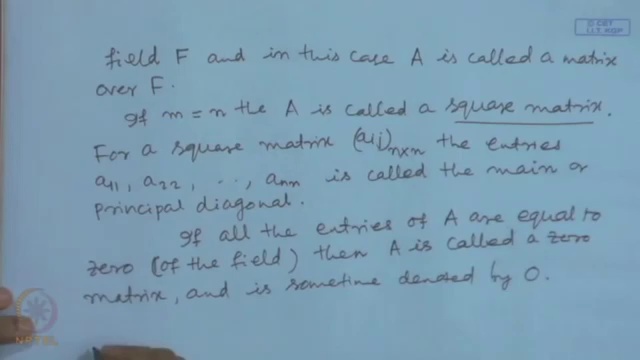 © CET
I.I.T. KGP
field F and in this case A is called a matrix
over F.
If m = n the A is called a square matrix.
For a square matrix (aij)n×n the entries
a11, a22, . . ., ann is called the main or
principal diagonal.
If all the entries of A are equal to
zero (of the field) then A is called a zero
matrix, and is sometime denoted by O.
NPTEL